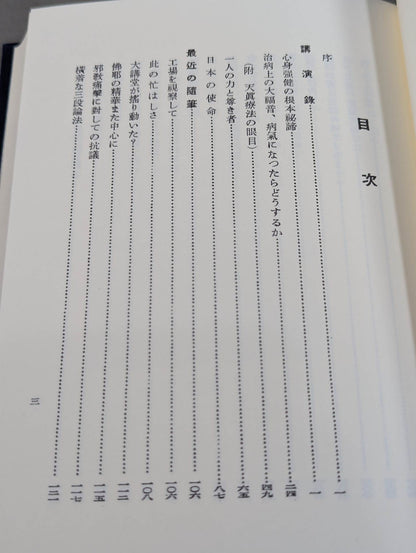 目次
序……一
講演録……一
心身强健の根本祕諦……二四
治病上の大福音、病氣になつたらどうするか……四九
(附 天眞療法の眼目)……六五
一人の力と尊き者……八七
日本の使命
最近の隨筆……一〇六
工場を視察して……一〇六
此の忙はしさ……一〇八
大講堂が搖り動いた?……一一二
佛耶の精華また中心に……一一五
邪敎痛擊に對しての抗議……一一七
橫着な三段論法……一二一
三